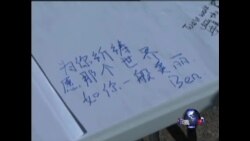 为你祈祷
愿那个世界
如你一般美丽
Ben
VOA